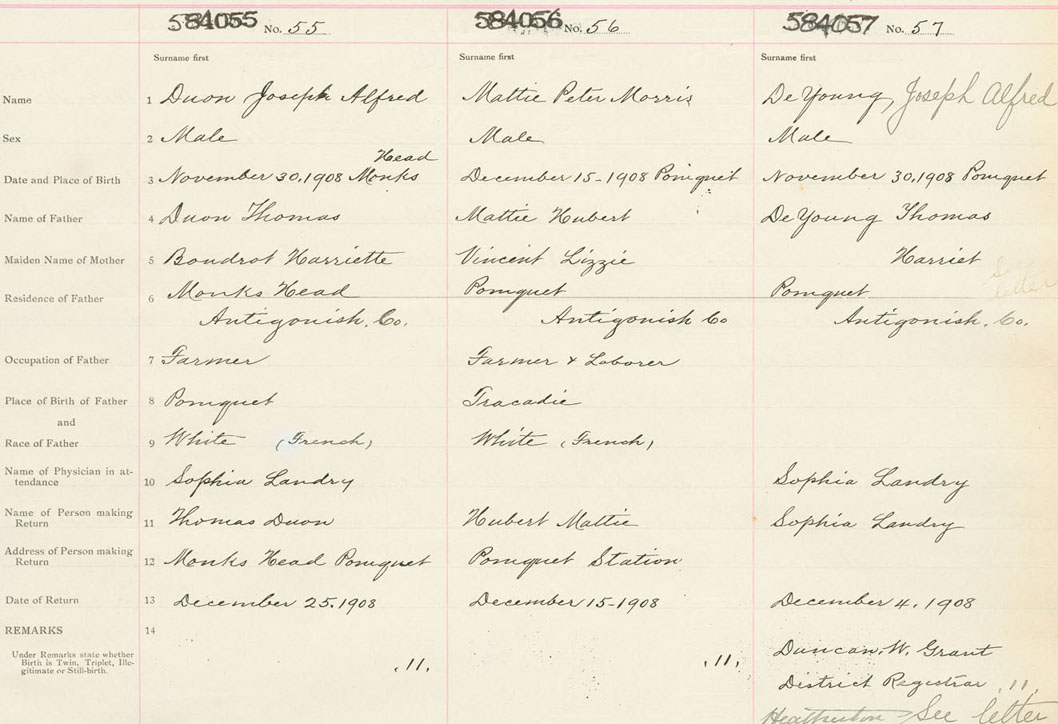 584055 No. 55 584056 No. 56 584057 No. 57
Surname first Surname first Surname first
Name 1 Duon Joseph Alfred Mattie Peter Morris De Young, Joseph Alfred
Sex 2 Male Male Male
Head
Date and Place of Birth 3 November 30, 1908 Monks December 15-1908 Pomquet November 30, 1908 Pomquet
Name of Father 4 Duon Thomas Mattie Hubert De Young Thomas
Maiden Name of Mother 5 Boudrot Harriette Vincent Lizzie Harriet See
Residence of Father 6 Monks Head Pomquet Pomquet letter
Antigonish. Co. Antigonish Co Antigonish. Co.
Occupation of Father 7 Farmer Farmer & Laborer
Place of Birth of Father 8 Pomquet Tracadie
and
Race of Father 9 White (French) White (French)
Name of Physician in at-
tendance 10 Sophia Landry Sophia Landry
Name of Person making
Return 11 Thomas Duon Hubert Mattie Sophia Landry
Address of Person making
Return 12 Monks Head Pomquet Pomquet Station
Date of Return 13 December 25, 1908 December 15-1908 December 4, 1908
REMARKS 14
Under Remarks state whether
Birth is Twin, Triplet, Ille-
gitimate or Still-birth.
.11. .11. Duncan. W. Grant
District Registrar .11.
Heatherton See letter